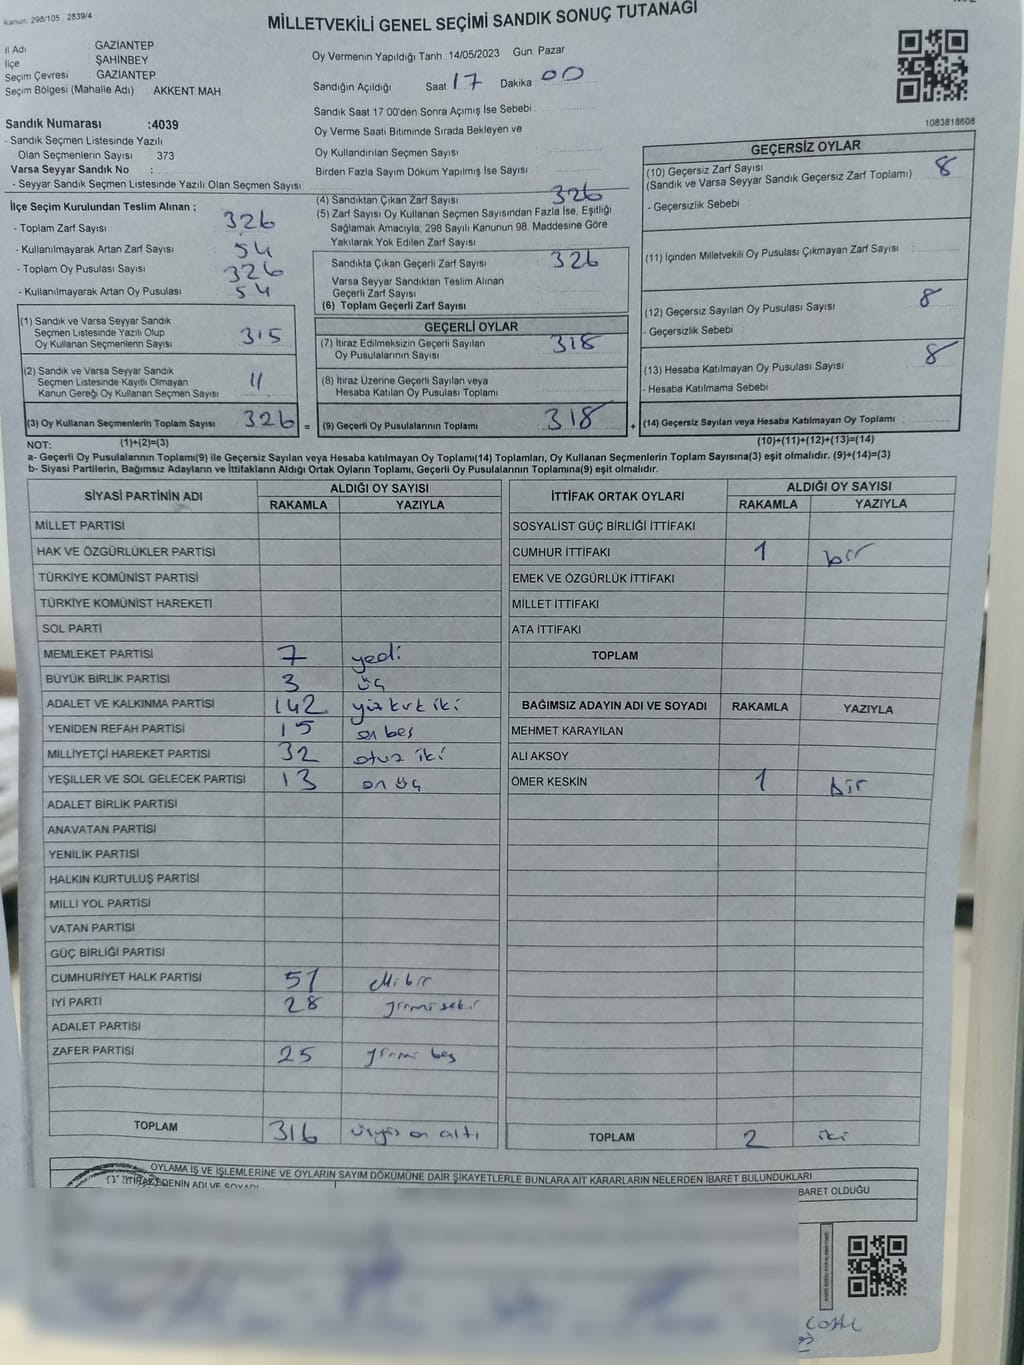 Kanun: 298/105 . 2839/4
MİLLETVEKİLİ GENEL SEÇİMİ SANDIK SONUÇ TUTANAĞI
İl Adı : GAZİANTEP
İlçe : ŞAHİNBEY
Seçim Çevresi : GAZİANTEP
Seçim Bölgesi (Mahalle Adı) : AKKENT MAH.
Oy Vermenin Yapıldığı Tarih : 14/05/2023 Gün: Pazar
Sandığın Açıldığı Saat: 17 Dakika: 00
Sandık Saat 17:00'den Sonra Açımış İse Sebebi :
Oy Verme Saati Bitiminde Sırada Bekleyen ve
Oy Kullandırılan Seçmen Sayısı
Birden Fazla Sayım Döküm Yapılmış İse Sayısı
1083818608
Sandık Numarası :4039
- Sandık Seçmen Listesinde Yazılı
Olan Seçmenlerin Sayısı : 373
Varsa Seyyar Sandık No :
- Seyyar Sandık Seçmen Listesinde Yazılı Olan Seçmen Sayısı:
İlçe Seçim Kurulundan Teslim Alınan ;
- Toplam Zarf Sayısı 326
- Kullanılmayarak Artan Zarf Sayısı 54
- Toplam Oy Pusulası Sayısı 326
- Kullanılmayarak Artan Oy Pusulası 54
(1) Sandık ve Varsa Seyyar Sandık
Seçmen Listesinde Yazılı Olup
Oy Kullanan Seçmenlerin Sayısı 315
(2) Sandık ve Varsa Seyyar Sandık
Seçmen Listesinde Kayıtlı Olmayan
Kanun Gereği Oy Kullanan Seçmen Sayısı 11
(3) Oy Kullanan Seçmenlerin Toplam Sayısı 326 =
(1)+(2)=(3)
(4) Sandıktan Çıkan Zarf Sayısı 326
(5) Zarf Sayısı Oy Kullanan Seçmen Sayısından Fazla İse, Eşitliği
Sağlamak Amacıyla, 298 Sayılı Kanunun 98. Maddesine Göre
Yakılarak Yok Edilen Zarf Sayısı
Sandıkta Çıkan Geçerli Zarf Sayısı 326
Varsa Seyyar Sandıktan Teslim Alınan
Geçerli Zarf Sayısı
(6) Toplam Geçerli Zarf Sayısı
GEÇERLİ OYLAR
(7) İtiraz Edilmeksizin Geçerli Sayılan
Oy Pusulalarının Sayısı 318
(8) İtiraz Üzerine Geçerli Sayılan veya
Hesaba Katılan Oy Pusulası Toplamı
(9) Geçerli Oy Pusulalarının Toplamı 318 +
GEÇERSİZ OYLAR
(10) Geçersiz Zarf Sayısı 8
(Sandık ve Varsa Seyyar Sandık Geçersiz Zarf Toplamı)
- Geçersizlik Sebebi :
(11) İçinden Milletvekili Oy Pusulası Çıkmayan Zarf Sayısı
(12) Geçersiz Sayılan Oy Pusulası Sayısı 8
- Geçersizlik Sebebi
(13) Hesaba Katılmayan Oy Pusulası Sayısı 8
- Hesaba Katılmama Sebebi :
(14) Geçersiz Sayılan veya Hesaba Katılmayan Oy Toplamı :
(10)+(11)+(12)+(13)=(14)
NOT:
a- Geçerli Oy Pusulalarının Toplamı(9) ile Geçersiz Sayılan veya Hesaba katılmayan Oy Toplamı(14) Toplamları, Oy Kullanan Seçmenlerin Toplam Sayısına(3) eşit olmalıdır. (9)+(14)=(3)
b- Siyasi Partilerin, Bağımsız Adayların ve İttifakların Aldığı Ortak Oyların Toplamı, Geçerli Oy Pusulalarının Toplamına(9) eşit olmalıdır.
SİYASİ PARTİNİN ADI ALDIĞI OY SAYISI
RAKAMLA YAZIYLA
MİLLET PARTİSİ
HAK VE ÖZGÜRLÜKLER PARTİSİ
TÜRKİYE KOMÜNİST PARTİSİ
TÜRKİYE KOMÜNİST HAREKETİ
SOL PARTİ
MEMLEKET PARTİSİ 7 yedi
BÜYÜK BİRLİK PARTİSİ 3 üç
ADALET VE KALKINMA PARTİSİ 142 yüz kırk iki
YENİDEN REFAH PARTİSİ 15 on beş
MİLLİYETÇİ HAREKET PARTİSİ 32 otuz iki
YEŞİLLER VE SOL GELECEK PARTİSİ 13 on üç
ADALET BİRLİK PARTİSİ
ANAVATAN PARTİSİ
YENİLİK PARTİSİ
HALKIN KURTULUŞ PARTİSİ
MİLLİ YOL PARTİSİ
VATAN PARTİSİ
GÜÇ BİRLİĞİ PARTİSİ
CUMHURİYET HALK PARTİSİ 51 elli bir
İYİ PARTİ 28 yirmi sekiz
ADALET PARTİSİ
ZAFER PARTİSİ 25 yirmi beş
TOPLAM 316 üçyüz on altı
İTTİFAK ORTAK OYLARI ALDIĞI OY SAYISI
RAKAMLA YAZIYLA
SOSYALİST GÜÇ BİRLİĞİ İTTİFAKI
CUMHUR İTTİFAKI 1 bir
EMEK VE ÖZGÜRLÜK İTTİFAKI
MİLLET İTTİFAKI
ATA İTTİFAKI
TOPLAM
BAĞIMSIZ ADAYIN ADI VE SOYADI RAKAMLA YAZIYLA
MEHMET KARAYILAN
ALİ AKSOY
ÖMER KESKİN 1 bir
TOPLAM 2 iki
OYLAMA İŞ VE İŞLEMLERİNE VE OYLARIN SAYIM DÖKÜMÜNE DAİR ŞİKAYETLERLE BUNLARA AİT KARARLARIN NELERDEN İBARET BULUNDUKLARI
İTİRAZ EDENİN ADI VE SOYADI
İBARET OLDUĞU